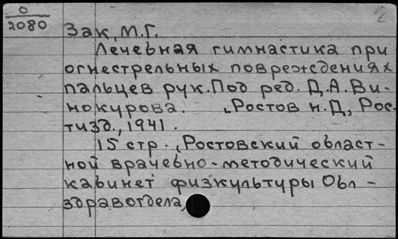 0
2080
2
Зак, М.Г.
Лечебная гимнастика при
огнестрельных повреждениях
пальцев рук. Под ред. Д.А.Ви-
нокурова. Ростов н.Д, Рос-
тизд., 1941.
15 стр. (Ростовский област-
ной врачебно-методический
кабинет физкультуры Обл-
здравотдела)